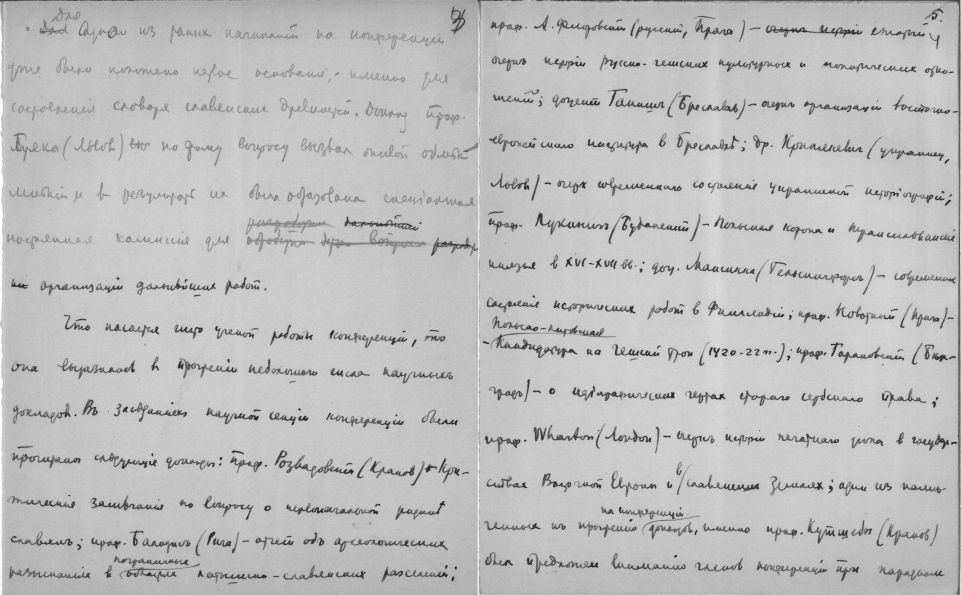 Для одно из таких начинаний на конференции
уже было положено первое основание, именно для
составления словаря славянских древностей. Доклад проф.
Буяка (Львов) по этому вопросу вызвал живой обмен
мнений и в результате их была образована специальная
постоянная комиссия для
организации дальнейших работ.
Что касается чисто ученой работы конференции, то
она выразилась в прочтении небольшого числа научных
докладов. Въ заседаниях научной секции конференции были
прочитаны следующие доклады: проф. Розвадовский (Краков) – Кри-
тические замечания по вопросу о первоначальной родине
славян; проф. Балодис (Рига) – отчет объ археологических
разысканиях в пограничных областях латышско-славянских расселений;
5.
проф. А. Флоровский (русский, Прага) –
очерк истории русско-чешских культурных и политических отно-
шений; доцент Ганиш (Бреславль) – очерк организации восточно-
европейского института в Бреславле; др. Крипякевич (украинец,
Львов) – очерк современного состояния украинской историографии;
проф. Лукинич (Будапешт) – Польская корона и трансильванские
князья в XVI-XVII вв.; доц. Мансикка (Гельсингфорс) – современное
состояние исторических работ в Финляндии; проф. Новотный (Прага) –
Польско-литовская
Кандидатура на чешский трон (1420-22 гг.); проф. Тарановский (Бел-
град) – о идеографических чертах старого сербского права;
проф. Wharton (London) – очерк истории печатного дела в государ-
ствах Восточной Европы и в славянских землях; один из наме-
ченных к прочтению на конференции докладов, именно проф. Кутшебы (Краков)
был предложен вниманию членов конференции при парадном